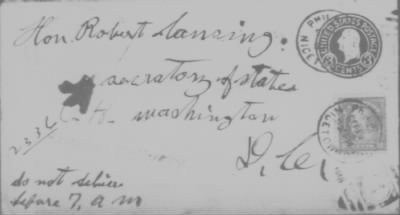 Hon. Robert Lansing.
secratory of states
washington
D. C.
2336
do not deliver
before 7, a m
UNITED STATES POSTAGE
CENTS
PHIL